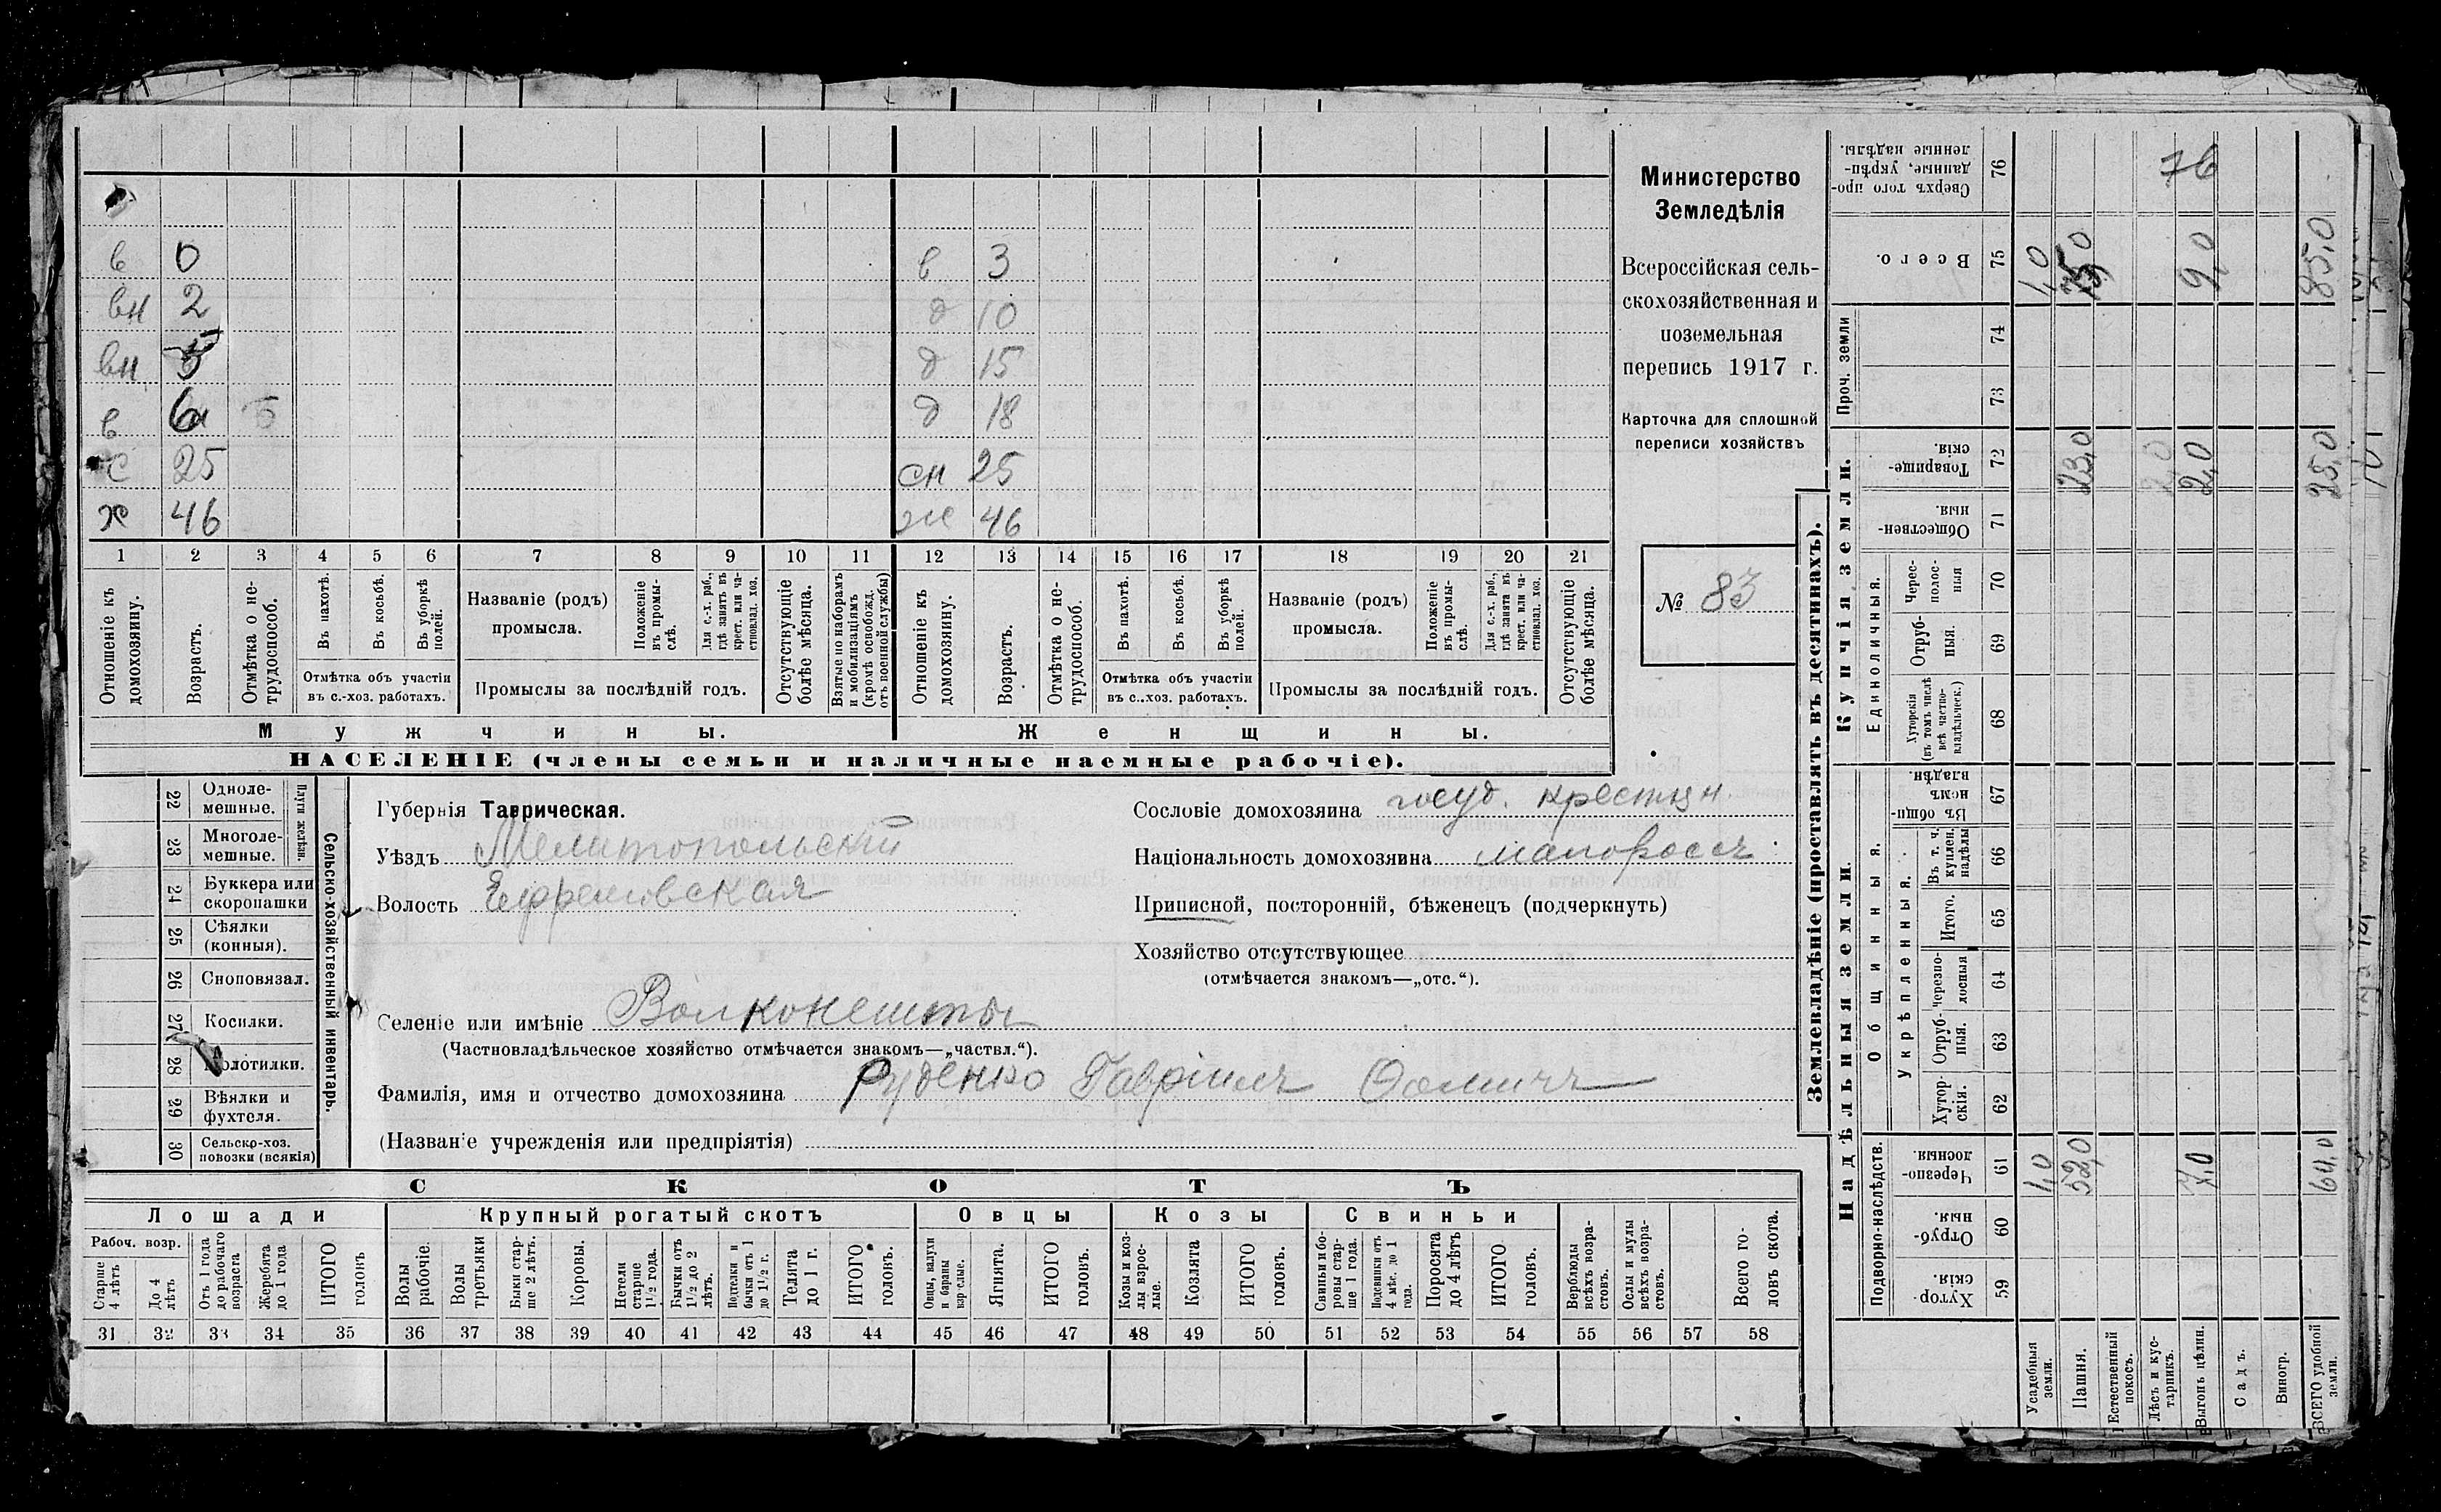 в 0 в 3
вн 2 д 10
вн 5 д 15
в д 18
с 25 сн 25
ж 46 ж 46
1 2 3 4 5 6 7 8 9 10 11 12 13 14 15 16 17 18 19 20 21
Отношеніе къ домохозяину.
Возрастъ.
Отмѣтка о не-
трудоспособ.
Въ пахотѣ.
Въ косьбѣ.
Въ уборкѣ полей.
Отмѣтка объ участіи
въ с.-хоз. работахъ.
Названіе (родъ)
промысла.
Положеніе
въ промы-
слѣ.
Для с.-х. раб.,
гдѣ занятъ въ
крест. или ча-
стновлад. хоз.
Промыслы за послѣдній годъ.
Отсутствующіе
болѣе мѣсяца.
Взятые по наборамъ
и мобилизаціямъ
(кромѣ освобожд.
отъ военной службы)
Отношеніе къ
домохозяину.
Возрастъ.
Отмѣтка о не-
трудоспособ.
Въ пахотѣ.
Въ косьбѣ.
Въ уборкѣ
полей.
Отмѣтка объ участіи
въ с..хоз. работахъ.
Названіе (родъ)
промысла.
Положеніе
въ промы-
слѣ.
Для с.-х. раб.,
гдѣ занята въ
крест. или ча-
стновлад. хоз.
Промыслы за послѣдній годъ.
Отсутствующіе
болѣе мѣсяца.
Мужчины. Женщины.
НАСЕЛЕНІЕ (члены семьи и наличные наемные рабочіе).
Министерство
Земледѣлія
Всероссійская сель-
скохозяйственная и
поземельная
перепись 1917 г.
Карточка для сплошной
переписи хозяйствъ
№ 83
22 Одноле-
мешные.
23 Многоле-
мешные.
Плуги желѣзн.
24 Буккера или
скоропашки
25 Сѣялки
(конныя).
26 Сноповязал.
27 Косилки.
28 Молотилки.
29 Вѣялки и
фухтеля.
30 Сельско-хоз.
повозки (всякія)
Сельско-хозяйственный инвентарь.
Губернія Таврическая.
Уѣздъ Мелитопольскій
Волость Ефремовская
Селеніе или имѣніе Волконешты
(Частновладѣльческое хозяйство отмѣчается знакомъ—„частвл.“).
Фамилія, имя и отчество домохозяина Руденко Гавріилъ Ѳомичъ
(Названіе учрежденія или предпріятія)
Сословіе домохозяина госуд. крестян
Національность домохозяина малороссъ
Приписной, посторонній, бѣженецъ (подчеркнуть)
Хозяйство отсутствующее
(отмѣчается знакомъ—„отс.“).
СКОТЪ
Лошади Крупный рогатый скотъ Овцы Козы Свиньи
Рабоч. возр.
Старше
4 лѣтъ
До 4
лѣтъ
Отъ 1 года
до рабочаго
возраста
Жеребята
до 1 года
ИТОГО
головъ
Волы
рабочіе.
Волы
третьяки
Быки стар-
ше 2 лѣтъ.
Коровы.
Нетели
старше
1 1/2 года.
Бычки отъ
1 1/2 до 2
лѣтъ.
Подтелки и
бычки отъ 1
до 1 1/2 г.
Телята
до 1 г.
ИТОГО
головъ.
Овцы, валухи
и бараны
взрослые.
Ягнята.
ИТОГО
головъ.
Козы и коз-
лы взрос-
лые.
Козлята
ИТОГО
головъ.
Свиньи и бо-
ровы стар-
ше 1 года.
Подсвинки отъ
4 мѣс. до 1
года.
Поросята
до 4 лѣтъ
ИТОГО
головъ.
Верблюды
всѣхъ возра-
стовъ.
Ослы и мулы
всѣхъ возра-
стовъ.
Всего го-
ловъ скота.
31 32 33 34 35 36 37 38 39 40 41 42 43 44 45 46 47 48 49 50 51 52 53 54 55 56 57 58
Землевладѣніе (проставлять въ десятинахъ).
Надѣльныя земли. Купчія земли. Проч. земли
Подворно-наслѣдств.
Общинныя.
Укрѣпленныя.
Единоличныя.
Хутор-
скія. 59
Отруб-
ныя. 60
Черезпо-
лосныя 61 1,0 52,0 64,0
Хутор-
скія. 62
Отруб-
ныя. 63
Черезпо-
лосныя 64
Итого. 65
Въ т. ч.
куплен.
надѣлы 66
Въ общи-
номъ
владѣн. 67
Хуторскія
(въ томъ числѣ
всѣ частно-
владѣльческ.) 68
Отруб-
ныя. 69
Черес-
полос-
ныя 70
Обществен-
ныя 71
Товарище-
скія 72 23,0 2,0 2,0 25,0
73
74
Всего. 75 1,0 9,0 85,0
Сверхъ того про-
данные, укрѣп-
ленные надѣлы. 76 76
Усадебныя
земли.
Пашня.
Естественный
покосъ.
Лѣсъ и кус-
тарникъ.
Выгонъ цѣлин.
Садъ.
Виногр.
ВСЕГО удобной
земли.